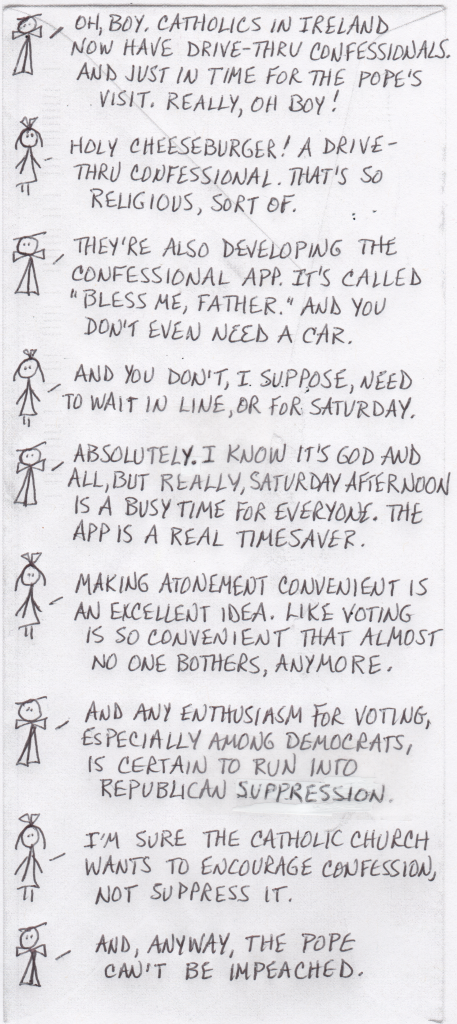 OH, BOY. CATHOLICS IN IRELAND
NOW HAVE DRIVE-THRU CONFESSIONALS.
AND JUST IN TIME FOR THE POPE'S
VISIT. REALLY, OH BOY!
HOLY CHEESEBURGER! A DRIVE-
THRU CONFESSIONAL. THAT'S SO
RELIGIOUS, SORT OF.
THEY'RE ALSO DEVELOPING THE
CONFESSIONAL APP. IT'S CALLED
"BLESS ME, FATHER." AND YOU
DON'T EVEN NEED A CAR.
AND YOU DON'T, I SUPPOSE, NEED
TO WAIT IN LINE, OR FOR SATURDAY.
ABSOLUTELY. I KNOW IT'S GOD AND
ALL, BUT REALLY, SATURDAY AFTERNOON
IS A BUSY TIME FOR EVERYONE. THE
APP IS A REAL TIMESAVER.
MAKING ATONEMENT CONVENIENT IS
AN EXCELLENT IDEA. LIKE VOTING
IS SO CONVENIENT THAT ALMOST
NO ONE BOTHERS, ANYMORE.
AND ANY ENTHUSIASM FOR VOTING,
ESPECIALLY AMONG DEMOCRATS,
IS CERTAIN TO RUN INTO
REPUBLICAN SUPPRESSION.
I'M SURE THE CATHOLIC CHURCH
WANTS TO ENCOURAGE CONFESSION,
NOT SUPPRESS IT.
AND, ANYWAY, THE POPE
CAN'T BE IMPEACHED.